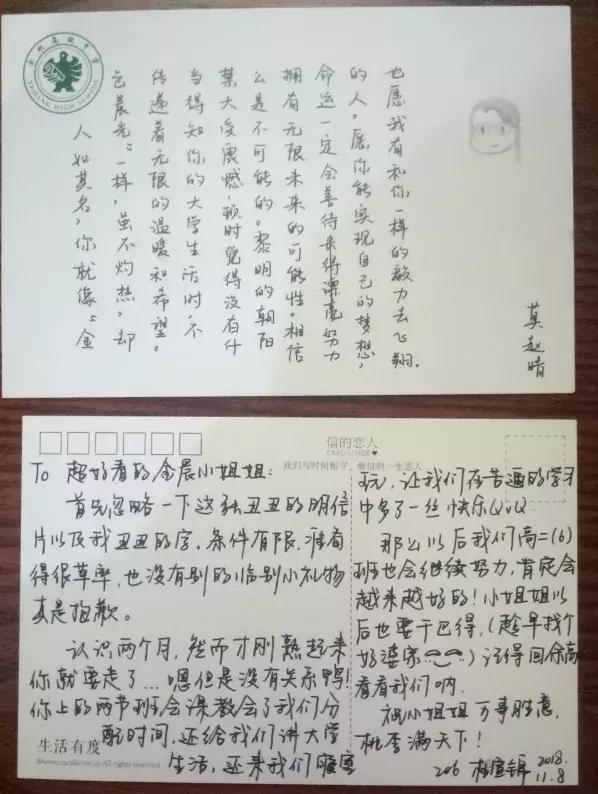 余杭高级中学
YUHANG HIGH SCHOOL
人如其名，你就像“金
色晨光”一样，虽不灼热，却
传递着无限的温暖和希望。
当得知你的大学生活时，不
某大受震撼，顿时觉得没有什
么是不可能的。黎明的朝阳
拥有无限未来的可能性。相信
命运一定会善待来得漂亮努力
的人。愿你能实现自己的梦想，
也愿我有和你一样的毅力去飞翔.
莫赵晴
信的恋人
CARD LOVER♥
我们与时间相守，做信的一生恋人
To 超好看的金晨小姐姐：
首先忽略一下这张丑丑的明信
片以及我丑丑的字，条件有限，准备
得很草率，也没有别的临别小礼物
真是抱歉。
认识两个月，然而才刚熟起来
你就要走了…嗯但是没有关系鸭！
你上的两节班会课教会了我们分
配时间，还给我们讲大学
生活，还来我们寝室
玩，让我们在普通的学习
中多了一丝快乐QvQ
那么以后我们高二(6)
班也会继续努力，肯定会
越来越好的！小姐姐以
后也要干巴得，(趁早找个
好婆家) 记得回余高
看看我们呐．
祝小姐姐万事胜意，
桃李满天下！
206 2018.
11.8
生活有度
©www.cardlover.cn All rights reserved